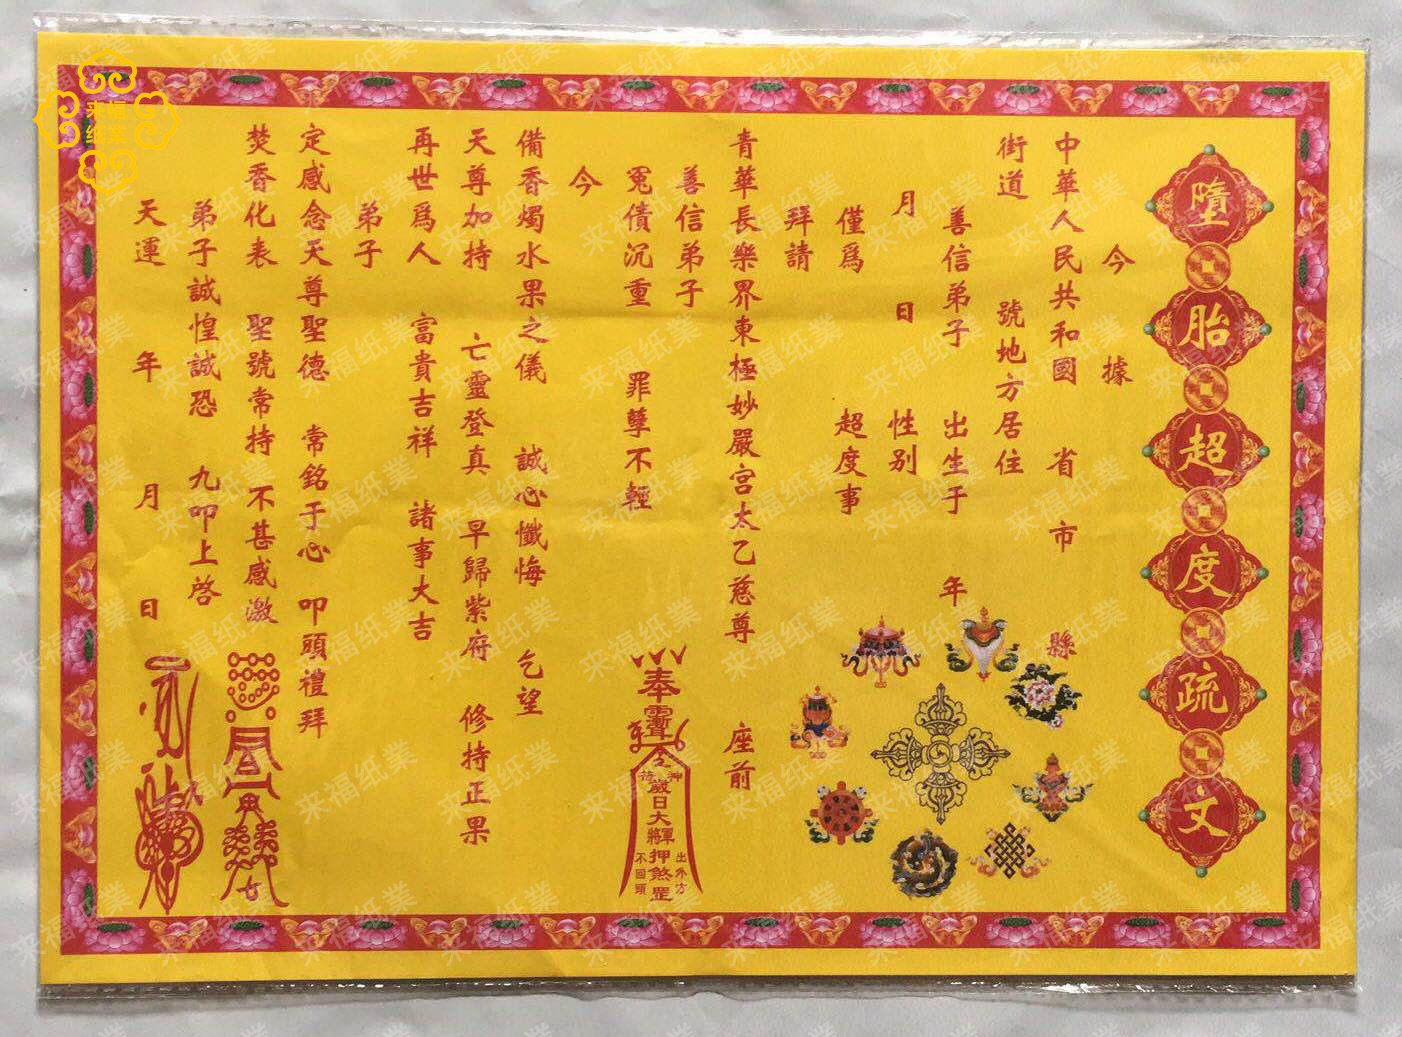 墮胎超度疏文
今 據
中華人民共和國 省 市 縣
街道 號地方居住
善信弟子 出生于 年
月 日 性别
僅爲 超度事
拜請
青華長樂界東極妙嚴宫太乙慈尊 座前
善信弟子
冤債沉重 罪孽不輕
今
備香燭水果之儀 誠心懺悔 乞望
天尊加持 亡靈登真 早歸紫府 修持正果
再世爲人 富貴吉祥 諸事大吉
弟子
定感念天尊聖德 常銘于心 叩頭禮拜
焚香化表 聖號常持 不甚感激
弟子誠惶誠恐 九叩上啓
天運 年 月 日
奉
令
神符
日大將軍押煞罡
出外方
不回頭
来福纸業